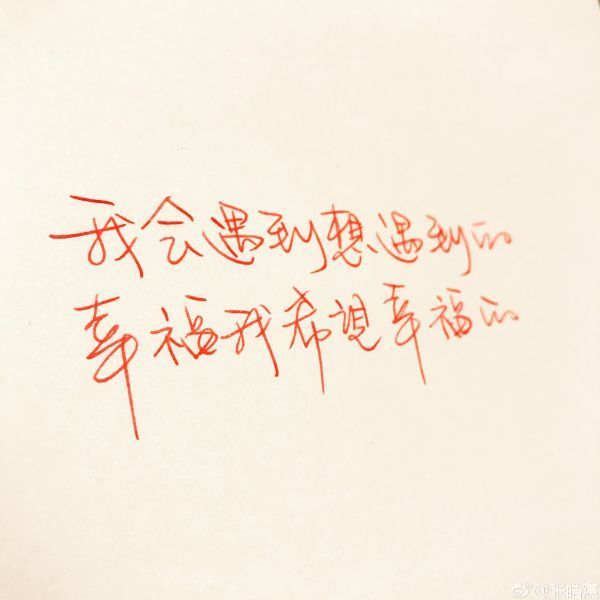 我会遇到想遇到的
幸福我希望幸福的
@张皓